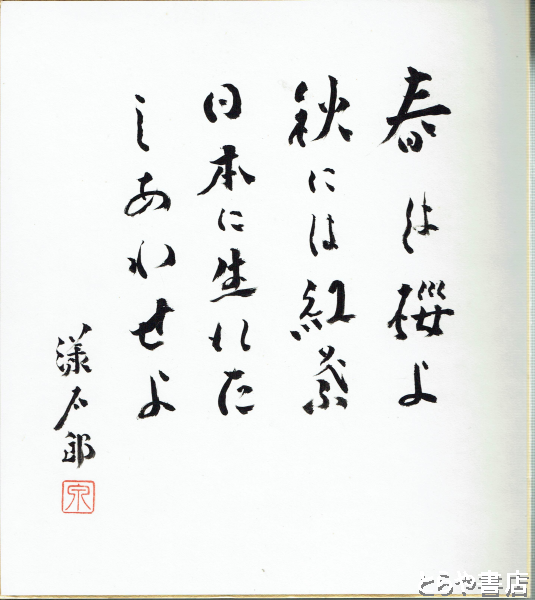 春は櫻よ
秋には紅葉
日本に生れた
しあわせよ
漾太郎
とらや書店